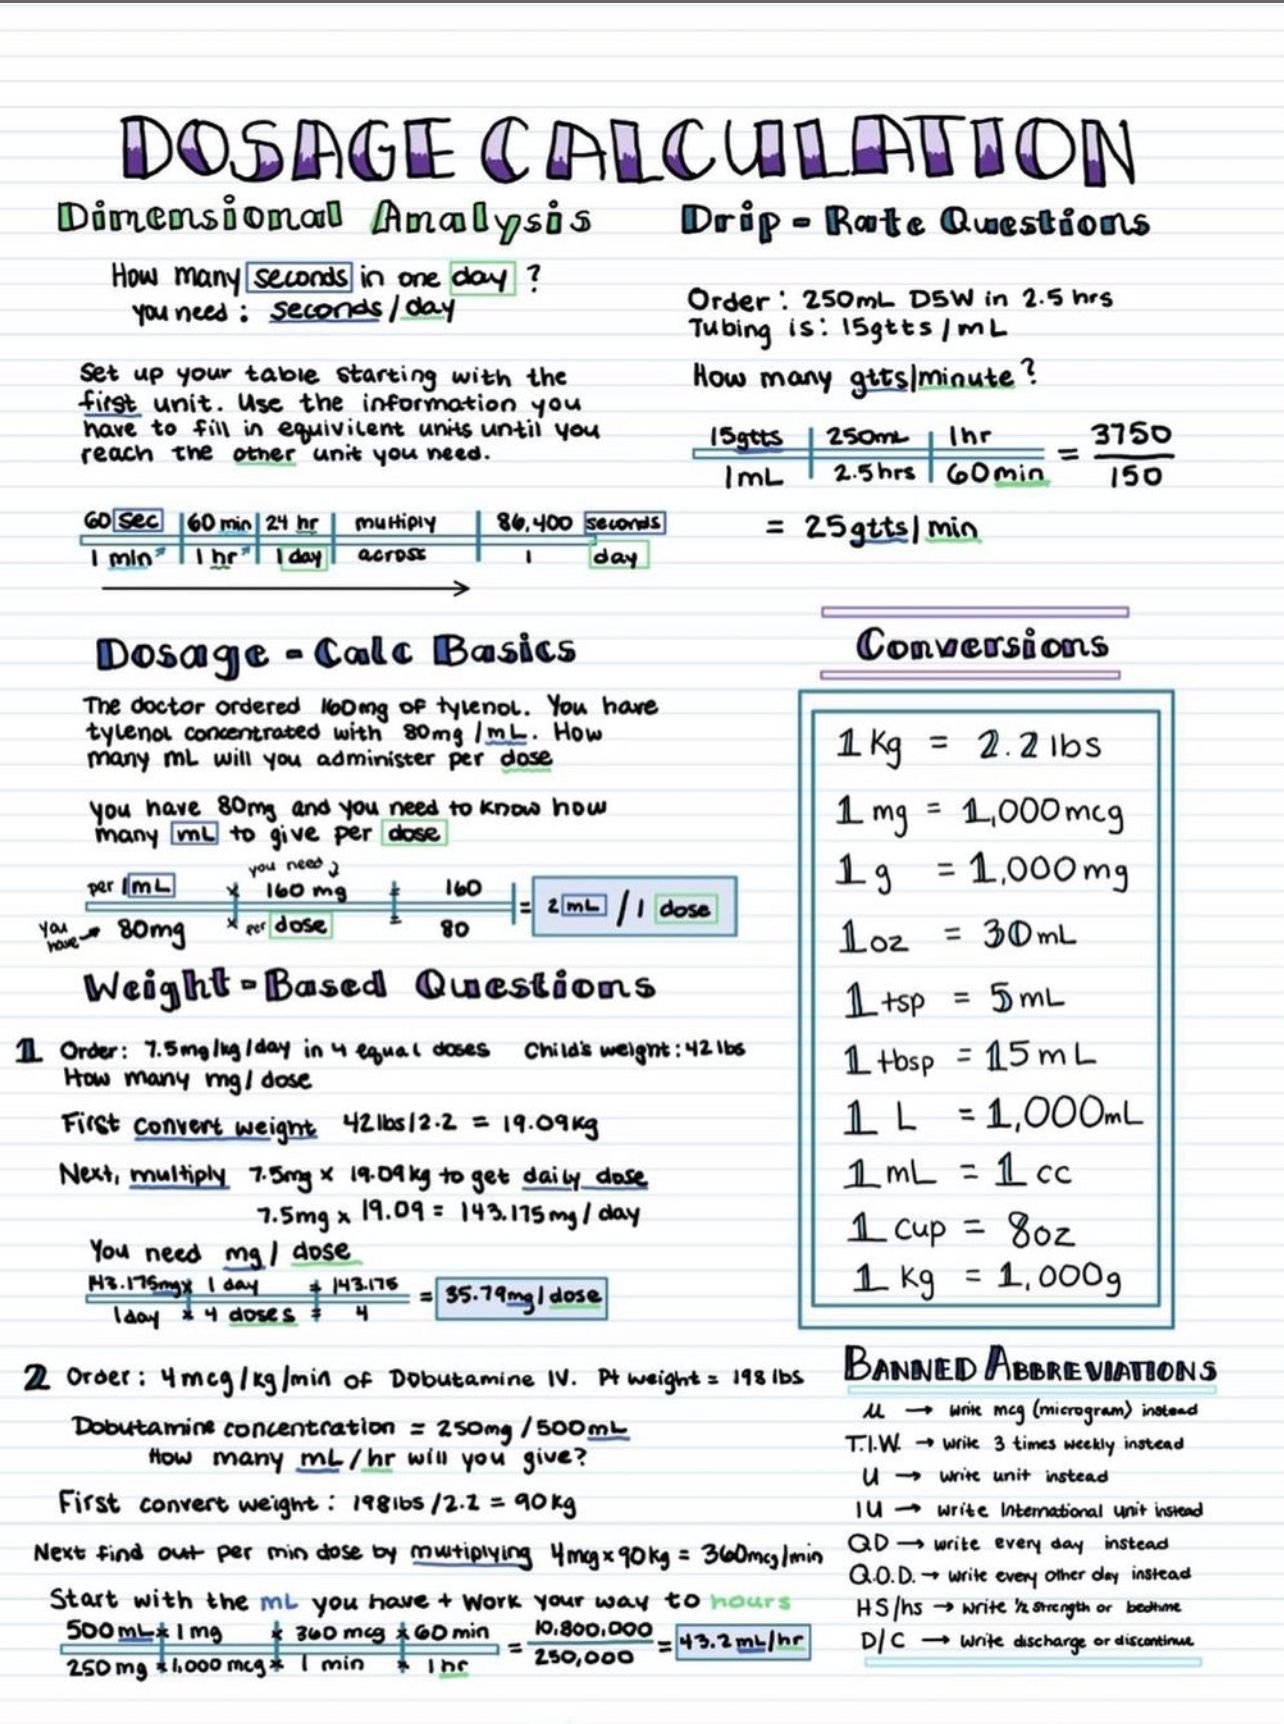 DOSAGE CALCULATION
Dimensional Analysis
How many seconds in one day ?
you need : seconds / day
Set up your table starting with the
first unit. Use the information you
have to fill in equivilent units until you
reach the other unit you need.
60 sec | 60 min | 24 hr | multiply | 86,400 seconds
1 min* | 1 hr* | 1 day | across | 1 day
Drip - Rate Questions
Order : 250mL D5W in 2.5 hrs
Tubing is : 15gtts / mL
How many gtts/minute ?
15gtts | 250mL | 1hr = 3750
1mL | 2.5hrs | 60min 150
= 25gtts/min
Dosage - Calc Basics
The doctor ordered 160mg of tylenol. You have
tylenol concentrated with 80mg /mL. How
many mL will you administer per dose
you have 80mg and you need to know how
many mL to give per dose
you need
per 1mL x 160 mg = 160
you have → 80mg x per dose = 80
= 2 mL / 1 dose
Weight - Based Questions
1 Order: 7.5mg/kg/day in 4 equal doses Child's weight: 42 lbs
How many mg/ dose
First convert weight 42lbs/2.2 = 19.09kg
Next, multiply 7.5mg x 19.09kg to get daily dose
7.5mg x 19.09 = 143.175mg/day
You need mg/ dose
143.175mg x 1 day = 143.175
1day x 4 doses = 4
= 35.79mg/dose
2 Order : 4mcg/kg/min of Dobutamine IV. Pt weight = 198 lbs
Dobutamine concentration = 250mg /500mL
How many mL/hr will you give?
First convert weight : 198lbs/2.2 = 90kg
Next find out per min dose by multiplying 4mcg x 90kg = 360mcg/min
Start with the mL you have + work your way to hours
500 mL x 1 mg x 360 mcg x 60 min = 10,800,000
250 mg x 1,000 mcg x 1 min x 1 hr 250,000
= 43.2 mL/hr
Conversions
1 Kg = 2.2 lbs
1 mg = 1,000 mcg
1 g = 1,000 mg
1 oz = 30 mL
1 tsp = 5 mL
1 tbsp = 15 mL
1 L = 1,000mL
1 mL = 1 cc
1 cup = 8oz
1 Kg = 1,000g
BANNED ABBREVIATIONS
μ → write mcg (microgram) instead
T.I.W. → write 3 times weekly instead
U → write unit instead
IU → write International unit instead
QD → write every day instead
Q.O.D. → write every other day instead
HS/hs → write ½ strength or bedtime
D/C → write discharge or discontinue